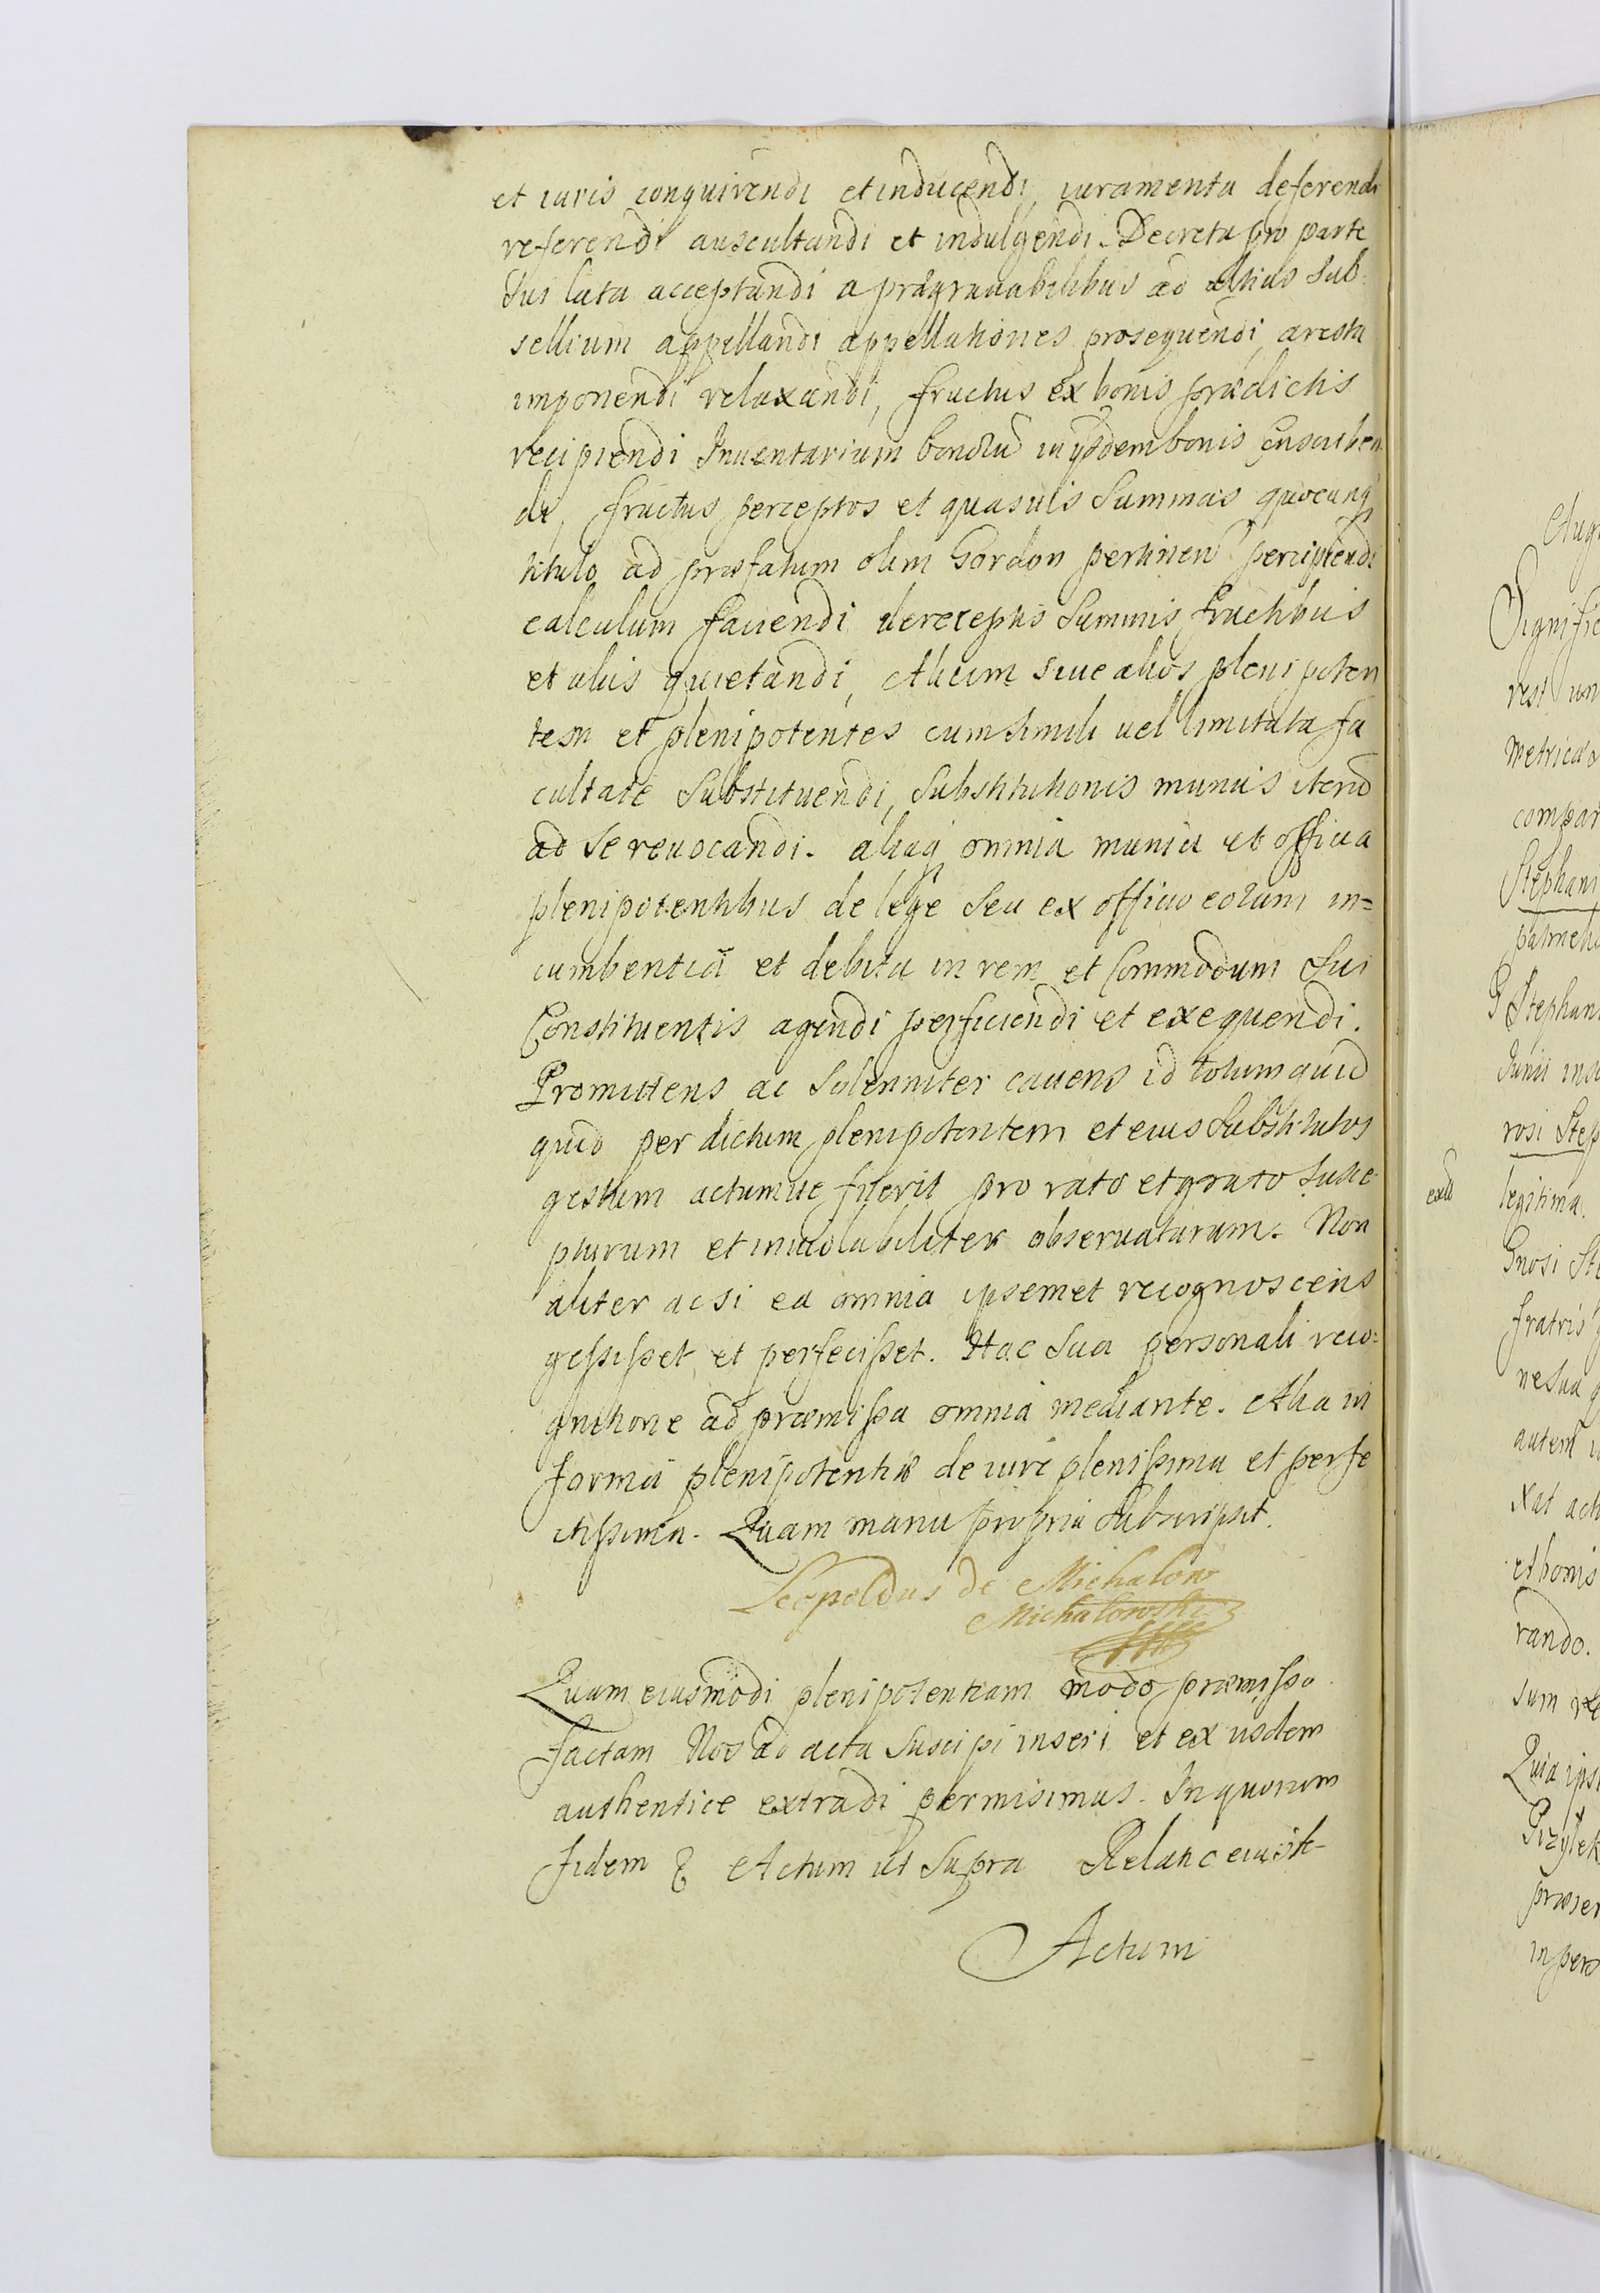 et iuris conquirendi et inducendi, iuramenta deferendi
referendi auscultandi et indulgendi. Decreta pro parte
sui lata acceptandi a prægrauabilibus ad altius sub-
sellium appellandi appellationes prosequendi, aresta
imponendi relaxandi, fructus ex bonis prædictis
recipiendi Inuentarium bonorū in ijsdem bonis conscriben
di, fructus perceptos et quasuis summas quocunq
titulo ad præfatum olim Gordon pertinen percipiendi
calculum faciendi de receptis summis fructibus
et alijs quietandi, Alium siue alios plenipoten
tem et plenipotentes cum simili uel limitata fa
cultate substituendi, substitutionis munus iterū
ad se reuocandi. aliaq omnia munia et officia
plenipotentibus de lege seu ex officio eorum in=
cumbentia et debita in rem et Commodum sui
Constituentis agendi perficiendi et exequendi.
Promittens ac solenniter cauens id totum quid
quid per dictum plenipotentem et eius substitutos
gestum actumue fuerit pro rato et grato susce
pturum et inuiolabiliter obseruaturum. Non
aliter ac si ea omnia ipsemet recognoscens
gessisset, et perfecisset. Hac sua personali reco-
gnitione ad præmissa omnia mediante. Alia in
forma plenipotentiæ de iure plenissima et perfe
ctissima. Quam manu propria subscripsit.
Leopoldus de Michalow
Michalowski
Quam eiusmodi plenipotentiam modo præmisso
factam Nos ad acta suscipi inseri et ex ijsdem
authentice extradi permisimus. In quorum
fidem Actum ut supra Relatio eiusde
Actum
Signific
metrica
compar
Stephani
G Stephan
Junii
rosi Step
legitima.
Gnosi St
fratris
ne sua
autem
et bonis
rando.
sum
Quia ips
præsen
in pers